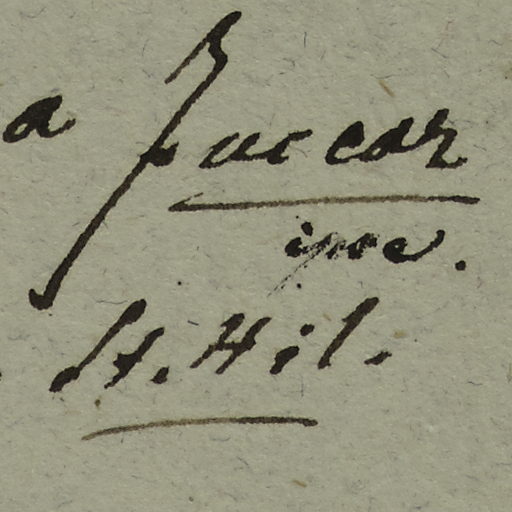 a Zuccar
ipse.
St. Hil.